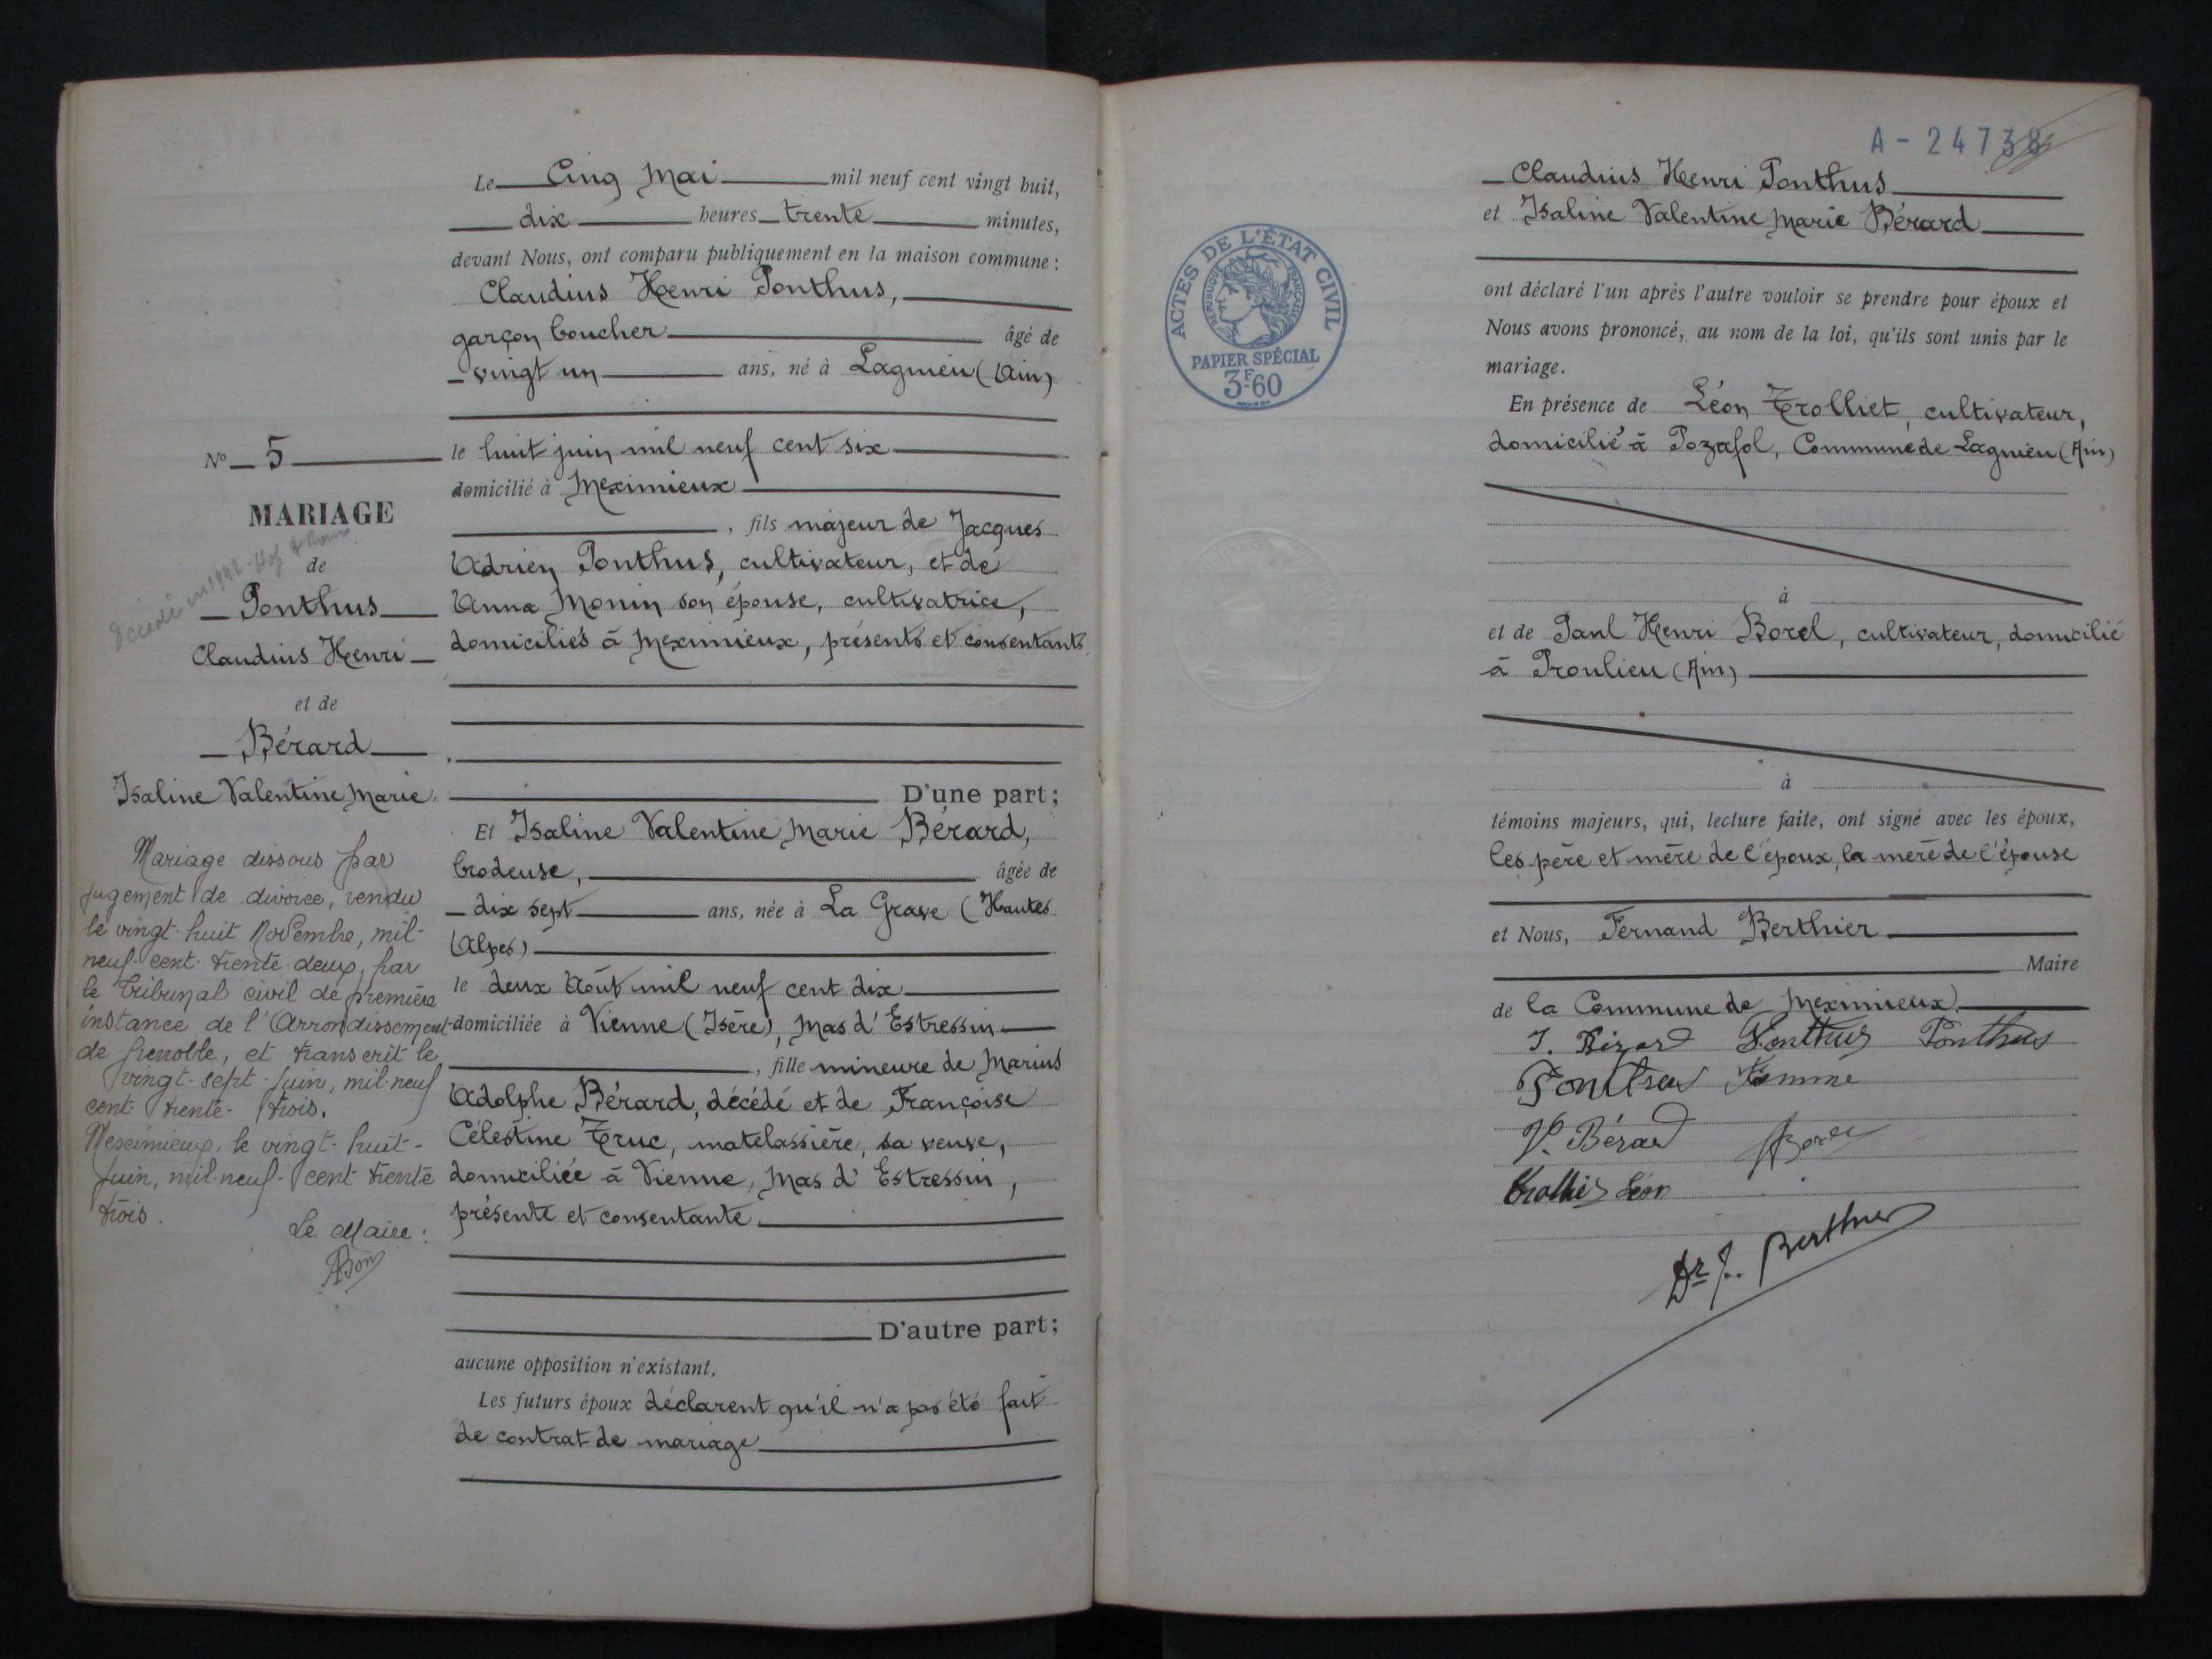 Le Cinq Mai mil neuf cent vingt huit,
dix heures trente minutes,
devant Nous, ont comparu publiquement en la maison commune :
Claudius Henri Ponthus,
garçon boucher âgé de
vingt un ans, né à Lagnieu (Ain)
le huit juin mil neuf cent six
domicilié à Meximieux
, fils majeur de Jacques
Adrien Ponthus, cultivateur, et de
Anna Monin son épouse, cultivatrice,
domiciliés à Meximieux, présents et consentants
D'une part ;
Et Isaline Valentine Marie Bérard,
brodeuse, âgée de
dix sept ans, née à La Grave (Hautes
Alpes)
le deux Août mil neuf cent dix
domiciliée à Vienne (Isère), Mas d'Estressin
, fille mineure de Marius
Adolphe Bérard, décédé et de Françoise
Célestine Truc, matelassière, sa veuve,
domiciliée à Vienne, Mas d'Estressin,
présente et consentante.
D'autre part ;
aucune opposition n'existant,
Les futurs époux déclarent qu'il n'a pas été fait
de contrat de mariage
No 5
MARIAGE
Décédé en 1942
de
Ponthus
Claudius Henri
et de
Bérard
Isaline Valentine Marie.
Mariage dissous par
jugement de divorce, rendu
le vingt-huit Novembre, mil-
neuf-cent-trente-deux, par
le Tribunal civil de première
instance de l'Arrondissement
de Grenoble, et transcrit le
vingt-sept-Juin, mil-neuf
cent-trente-trois.
Meximieux, le vingt-huit-
Juin, mil-neuf-cent-trente
trois.
Le Maire :
A - 24738
Claudius Henri Ponthus
et Isaline Valentine Marie Bérard
ACTES DE L'ÉTAT CIVIL
RÉPUBLIQUE FRANÇAISE
PAPIER SPÉCIAL
3F60
ont déclaré l'un après l'autre vouloir se prendre pour époux et
Nous avons prononcé, au nom de la loi, qu'ils sont unis par le
mariage.
En présence de Léon Trolliet, cultivateur,
domicilié à Pozafol, Commune de Lagnieu (Ain)
à
et de Paul Henri Borel, cultivateur, domicilié
à Proulieu (Ain)
à
témoins majeurs, qui, lecture faite, ont signé avec les époux,
les père et mère de l'époux, la mère de l'épouse
et Nous, Fernand Berthier
Maire
de la Commune de Meximieux
I. Bérard Ponthus Ponthus
Ponthus Femme
V. Bérard Borel
trolliet Léon
Dr F. Berthier